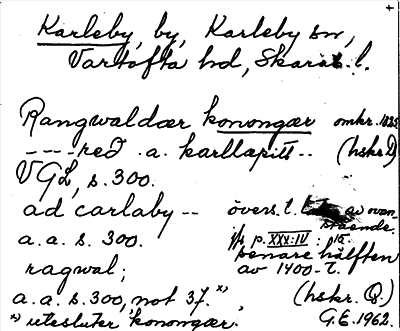 Karleby, by, Karleby sn,
Vartofta hd, Skarab. l.
Rangwaldær konongær omkr. 1325
---reð .a. karllapitt -- (hskr. D)
VGL, s. 300.
ad carlaby -- övers. t. l. av ovan-
stående.
a.a. s. 300. jfr p. XXX:IV :
senare hälften
ragwal; av 1400-t.
a.a. s. 300, not 37. x), (hskr. Q.)
x) utesluter konongær. G.E. 1962.